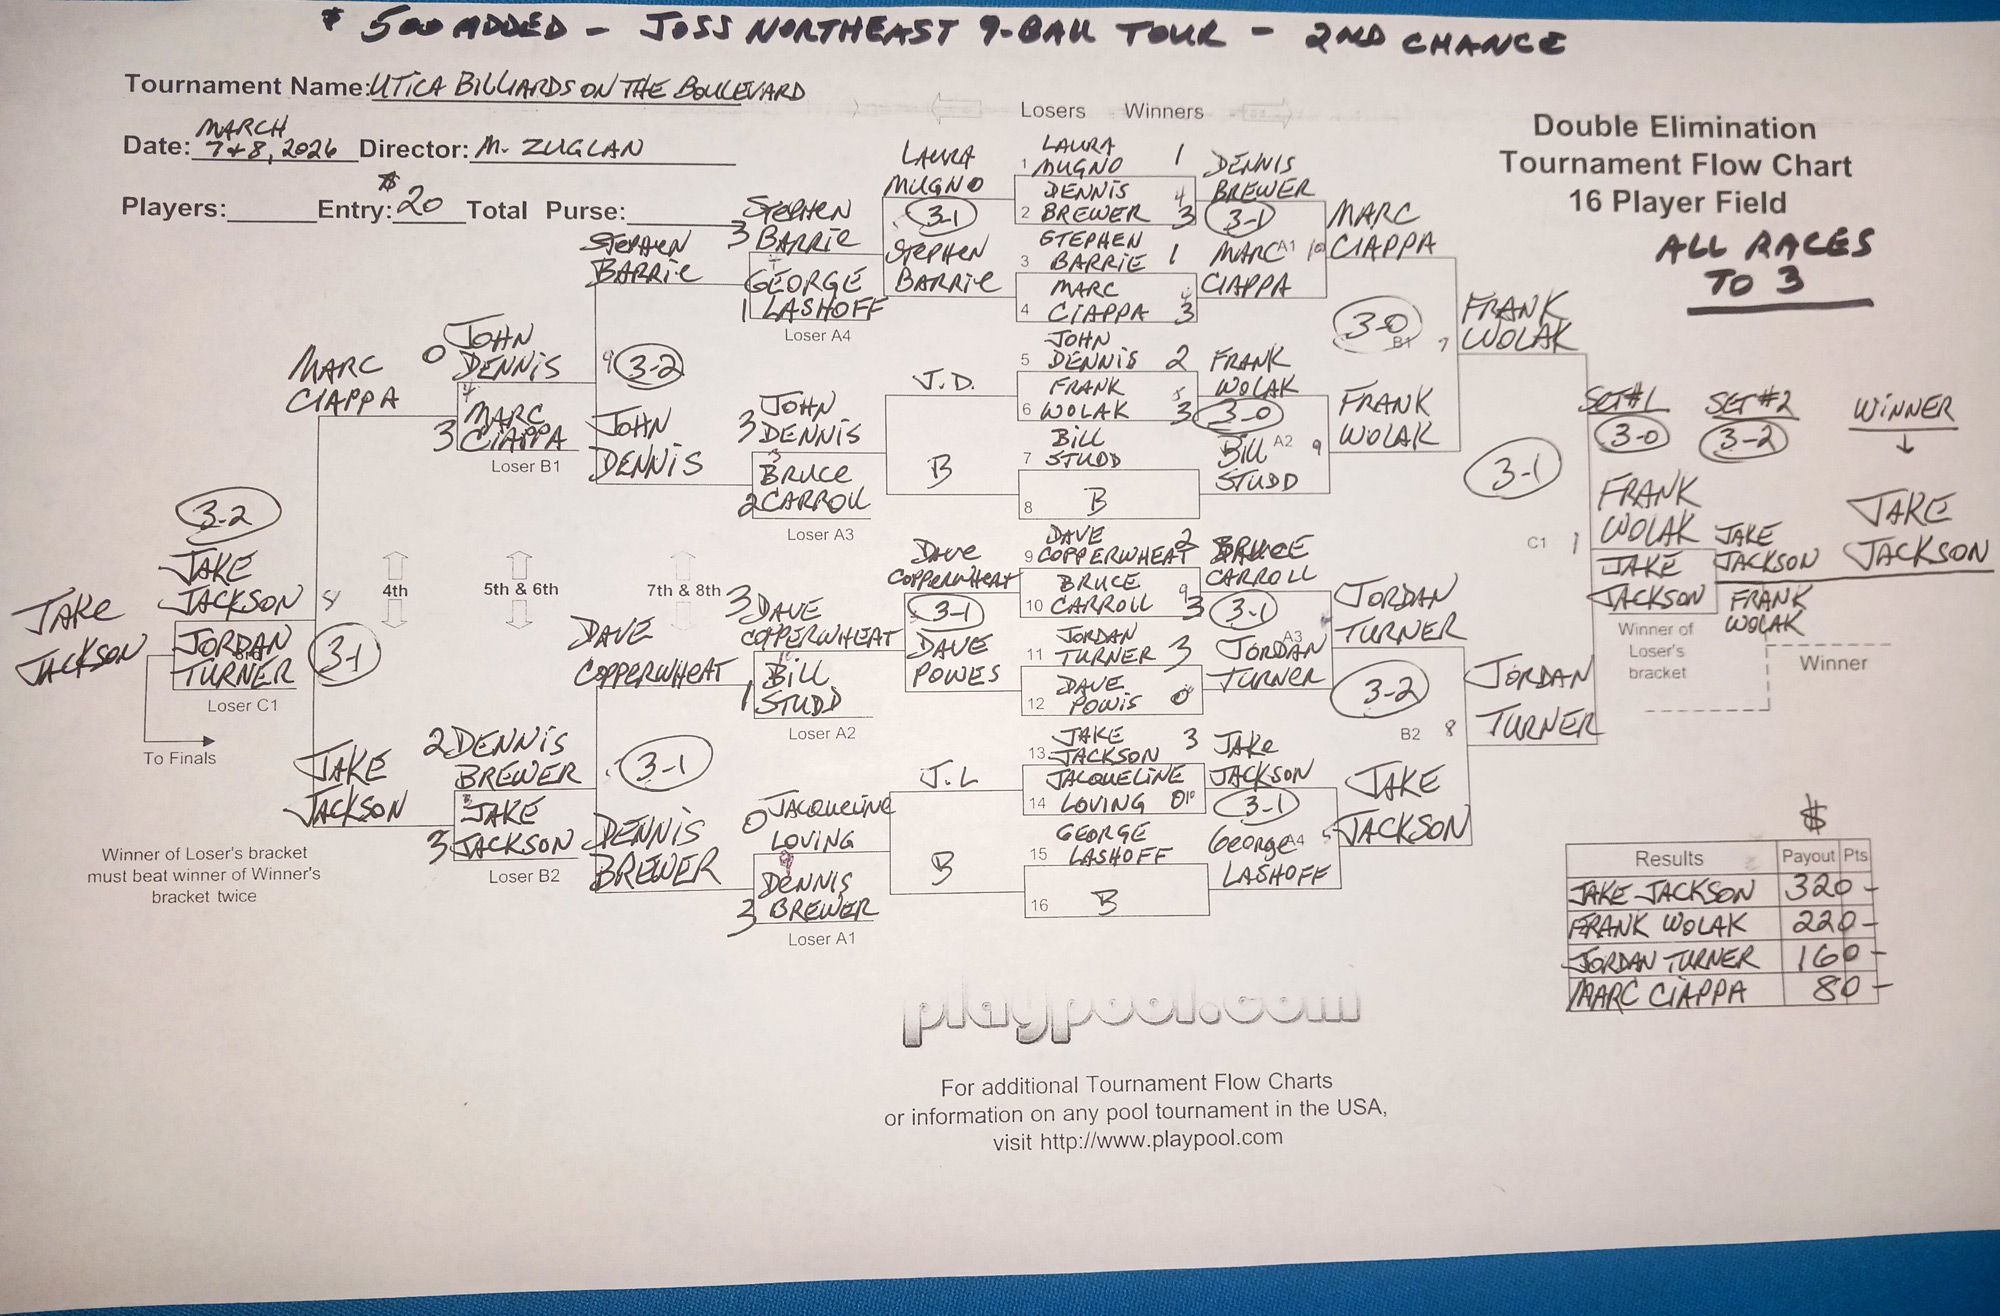 $500 ADDED - JOSS NORTHEAST 9-BALL TOUR - 2ND CHANCE
Tournament Name: UTICA BILLIARDS ON THE BOULEVARD
Date: MARCH 7&8, 2026 Director: M. ZUGLAN
Players: Entry: $20 Total Purse:
Losers Winners
Double Elimination
Tournament Flow Chart
16 Player Field
ALL RACES
TO 3
1 LAURA MUGNO 1
2 DENNIS BREWER 3
3 STEPHEN BARRIE 1
4 MARC CIAPPA 3
5 JOHN DENNIS 2
6 FRANK WOLAK 3
7 BILL STUDD
8 B
9 DAVE COPPERWHEAT 2
10 BRUCE CARROLL 3
11 JORDAN TURNER 3
12 DAVE POWIS 0
13 JAKE JACKSON 3
14 JACQUELINE LOVING 0
15 GEORGE LASHOFF
16 B
DENNIS BREWER
3-1
A1
MARC CIAPPA
FRANK WOLAK
3-0
A2
BILL STUDD
BRUCE CARROLL
3-1
A3
JORDAN TURNER
JAKE JACKSON
3-1
A4
GEORGE LASHOFF
MARC CIAPPA
3-0
B1
FRANK WOLAK
JORDAN TURNER
3-2
B2
JAKE JACKSON
FRANK WOLAK
3-1
C1
JORDAN TURNER
SET #1 SET #2 WINNER
3-0 3-2
FRANK WOLAK
JAKE JACKSON
JAKE JACKSON
FRANK WOLAK
JAKE JACKSON
Winner of
Loser's
bracket
Winner
LAURA MUGNO
3-1
STEPHEN BARRIE
J.D.
B
DAVE COPPERWHEAT
3-1
DAVE POWES
J.L
B
3 STEPHEN BARRIE
1 GEORGE LASHOFF
Loser A4
3 JOHN DENNIS
2 BRUCE CARROLL
Loser A3
3 DAVE COPPERWHEAT
1 BILL STUDD
Loser A2
0 JACQUELINE LOVING
3 DENNIS BREWER
Loser A1
STEPHEN BARRIE
3-2
JOHN DENNIS
DAVE COPPERWHEAT
3-1
DENNIS BREWER
0 JOHN DENNIS
3 MARC CIAPPA
Loser B1
4th 5th & 6th 7th & 8th
2 DENNIS BREWER
3 JAKE JACKSON
Loser B2
MARC CIAPPA
3-1
JAKE JACKSON
3-2
JAKE JACKSON
JORDAN TURNER
Loser C1
JAKE JACKSON
To Finals
Winner of Loser's bracket
must beat winner of Winner's
bracket twice
$
Results Payout Pts
JAKE JACKSON 320-
FRANK WOLAK 220-
JORDAN TURNER 160-
MARC CIAPPA 80-
playpool.com
For additional Tournament Flow Charts
or information on any pool tournament in the USA,
visit http://www.playpool.com